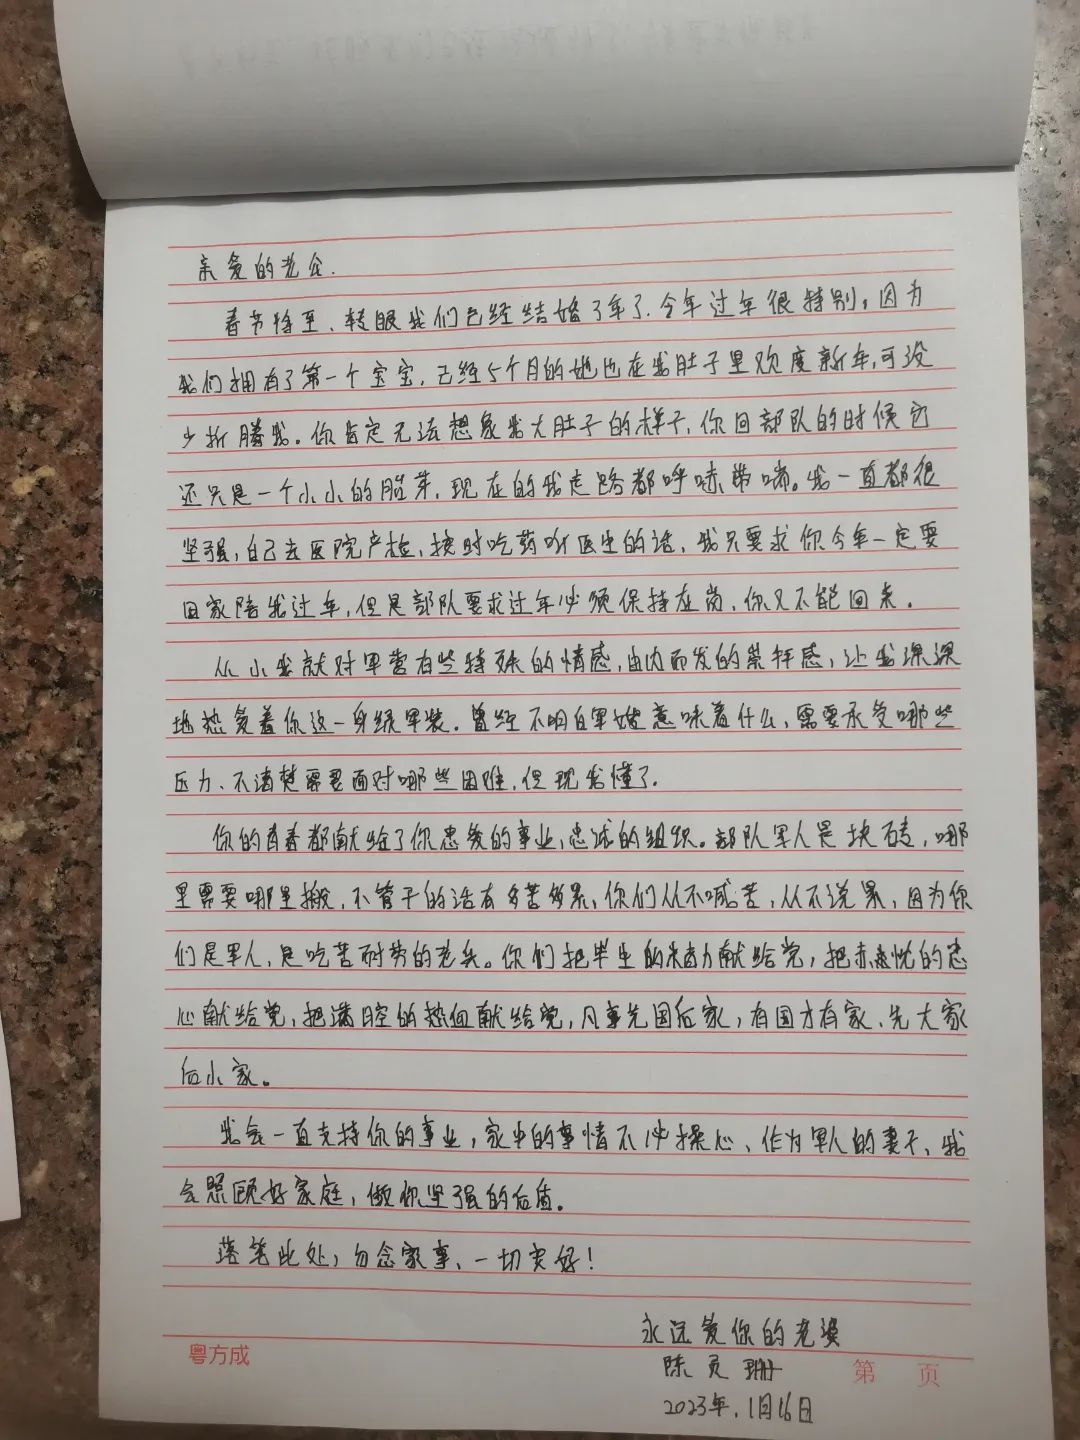 亲爱的老公.
春节将至、转眼我们已经结婚了年了.今年过年很特别。因为
我们拥有了第一个宝宝.已经5个月的她也在我肚子里欢度新年,可没
少折腾我。你肯定无法想象我大肚子的样子,你回部队的时候它
还只是一个小小的胚芽.现在的我走路都呼哧带喘。我一直都很
坚强,自己去医院产检、按时吃药听医生的话、我只要求你今年一定要
回家陪我过年,但是部队要求过年必须保持在岗、你又不能回来.
从小我就对军营有些特殊的情感,由内而发的崇拜感,让我深深
地热爱着你这一身绿军装.曾经不明白军嫂意味着什么,需要承受哪些
压力、不清楚需要面对哪些困难,但现我懂了.
你的青春都献给了你忠爱的事业,忠诚的组织。部队军人是块砖,哪
里需要哪里搬,不管干的活有多苦多累,你们从不喊苦,从不说累,因为你
们是军人,是吃苦耐劳的老兵。你们把毕生的精力献给党,把赤忱的忠
心献给党,把满腔的热血献给党,凡事先国后家,有国才有家、先大家
后小家。
我会一直支持你的事业,家中的事情不必操心、作为军人的妻子、我
会照顾好家庭,做你坚强的后盾。
落笔此处,勿念家事、一切安好!
永远爱你的老婆
陈 珊
2023年.1月16日
粤方成
第 页